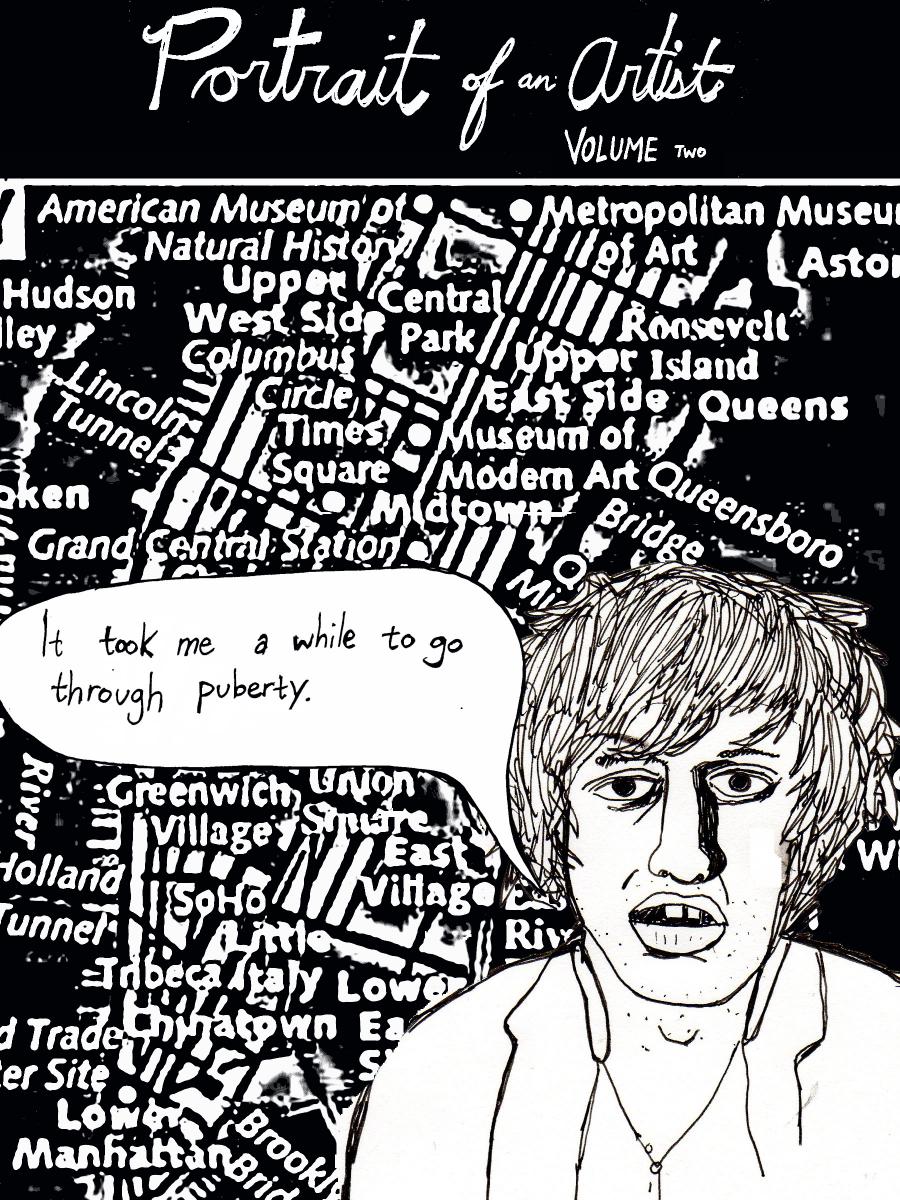 Portrait of an Artist
VOLUME TWO
American Museum of
Natural History
Metropolitan Museum
of Art
Astor
Hudson
lley
Upper
West Side
Central
Park
Roosevelt
Island
Columbus
Circle
Upper
East Side
Queens
Lincoln
Tunnel
Times
Square
Museum of
Modern Art
Queensboro
Bridge
oken
Midtown
Grand Central Station
Q
Mi
It took me a while to go
through puberty.
River
Greenwich
Village
Union
Square
East
Village
Wi
Holland
Tunnel
SoHo
Little
Italy
Riv
Tribeca
Lower
Ea
S
Chinatown
d Trade
ter Site
Lower
Manhattan
Brookl
Brid